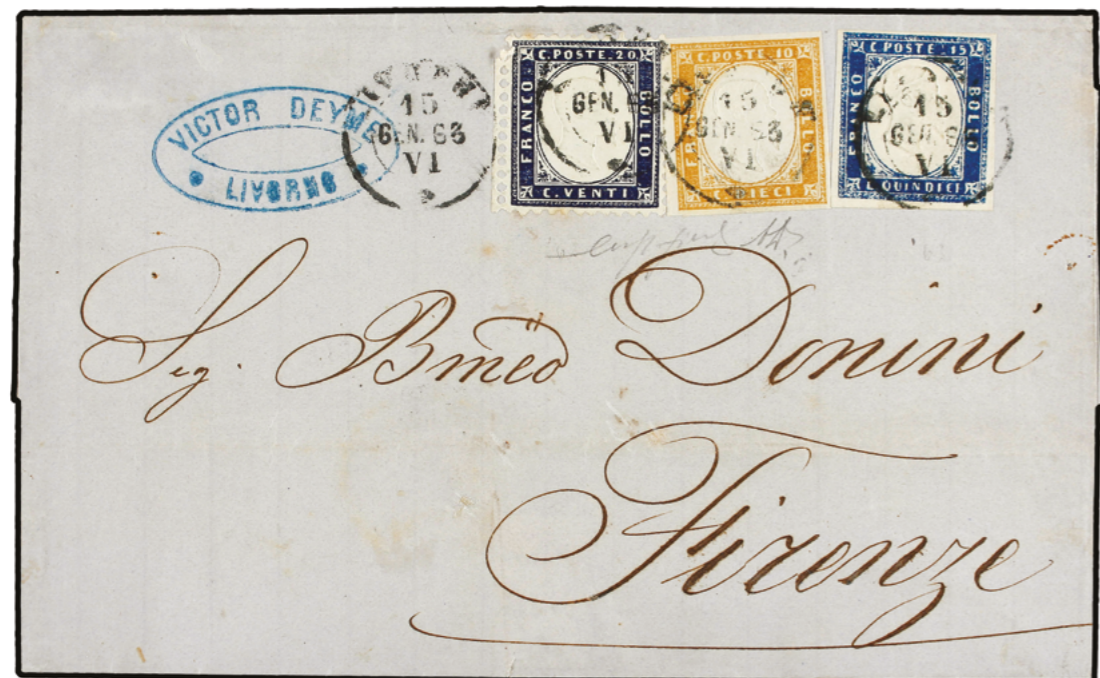 VICTOR DEYME
LIVORNO
LIVORNO
15
GEN. 63
VI
C. POSTE. 20
FRANCO BOLLO
C. VENTI
GEN.
VI
C. POSTE. 10
FRANCO BOLLO
DIECI
15
GEN. 63
VI
C. POSTE. 15
FRANCO BOLLO
QUINDICI
15
GEN. 6
VI
Sig. Bmeo Donini
Firenze